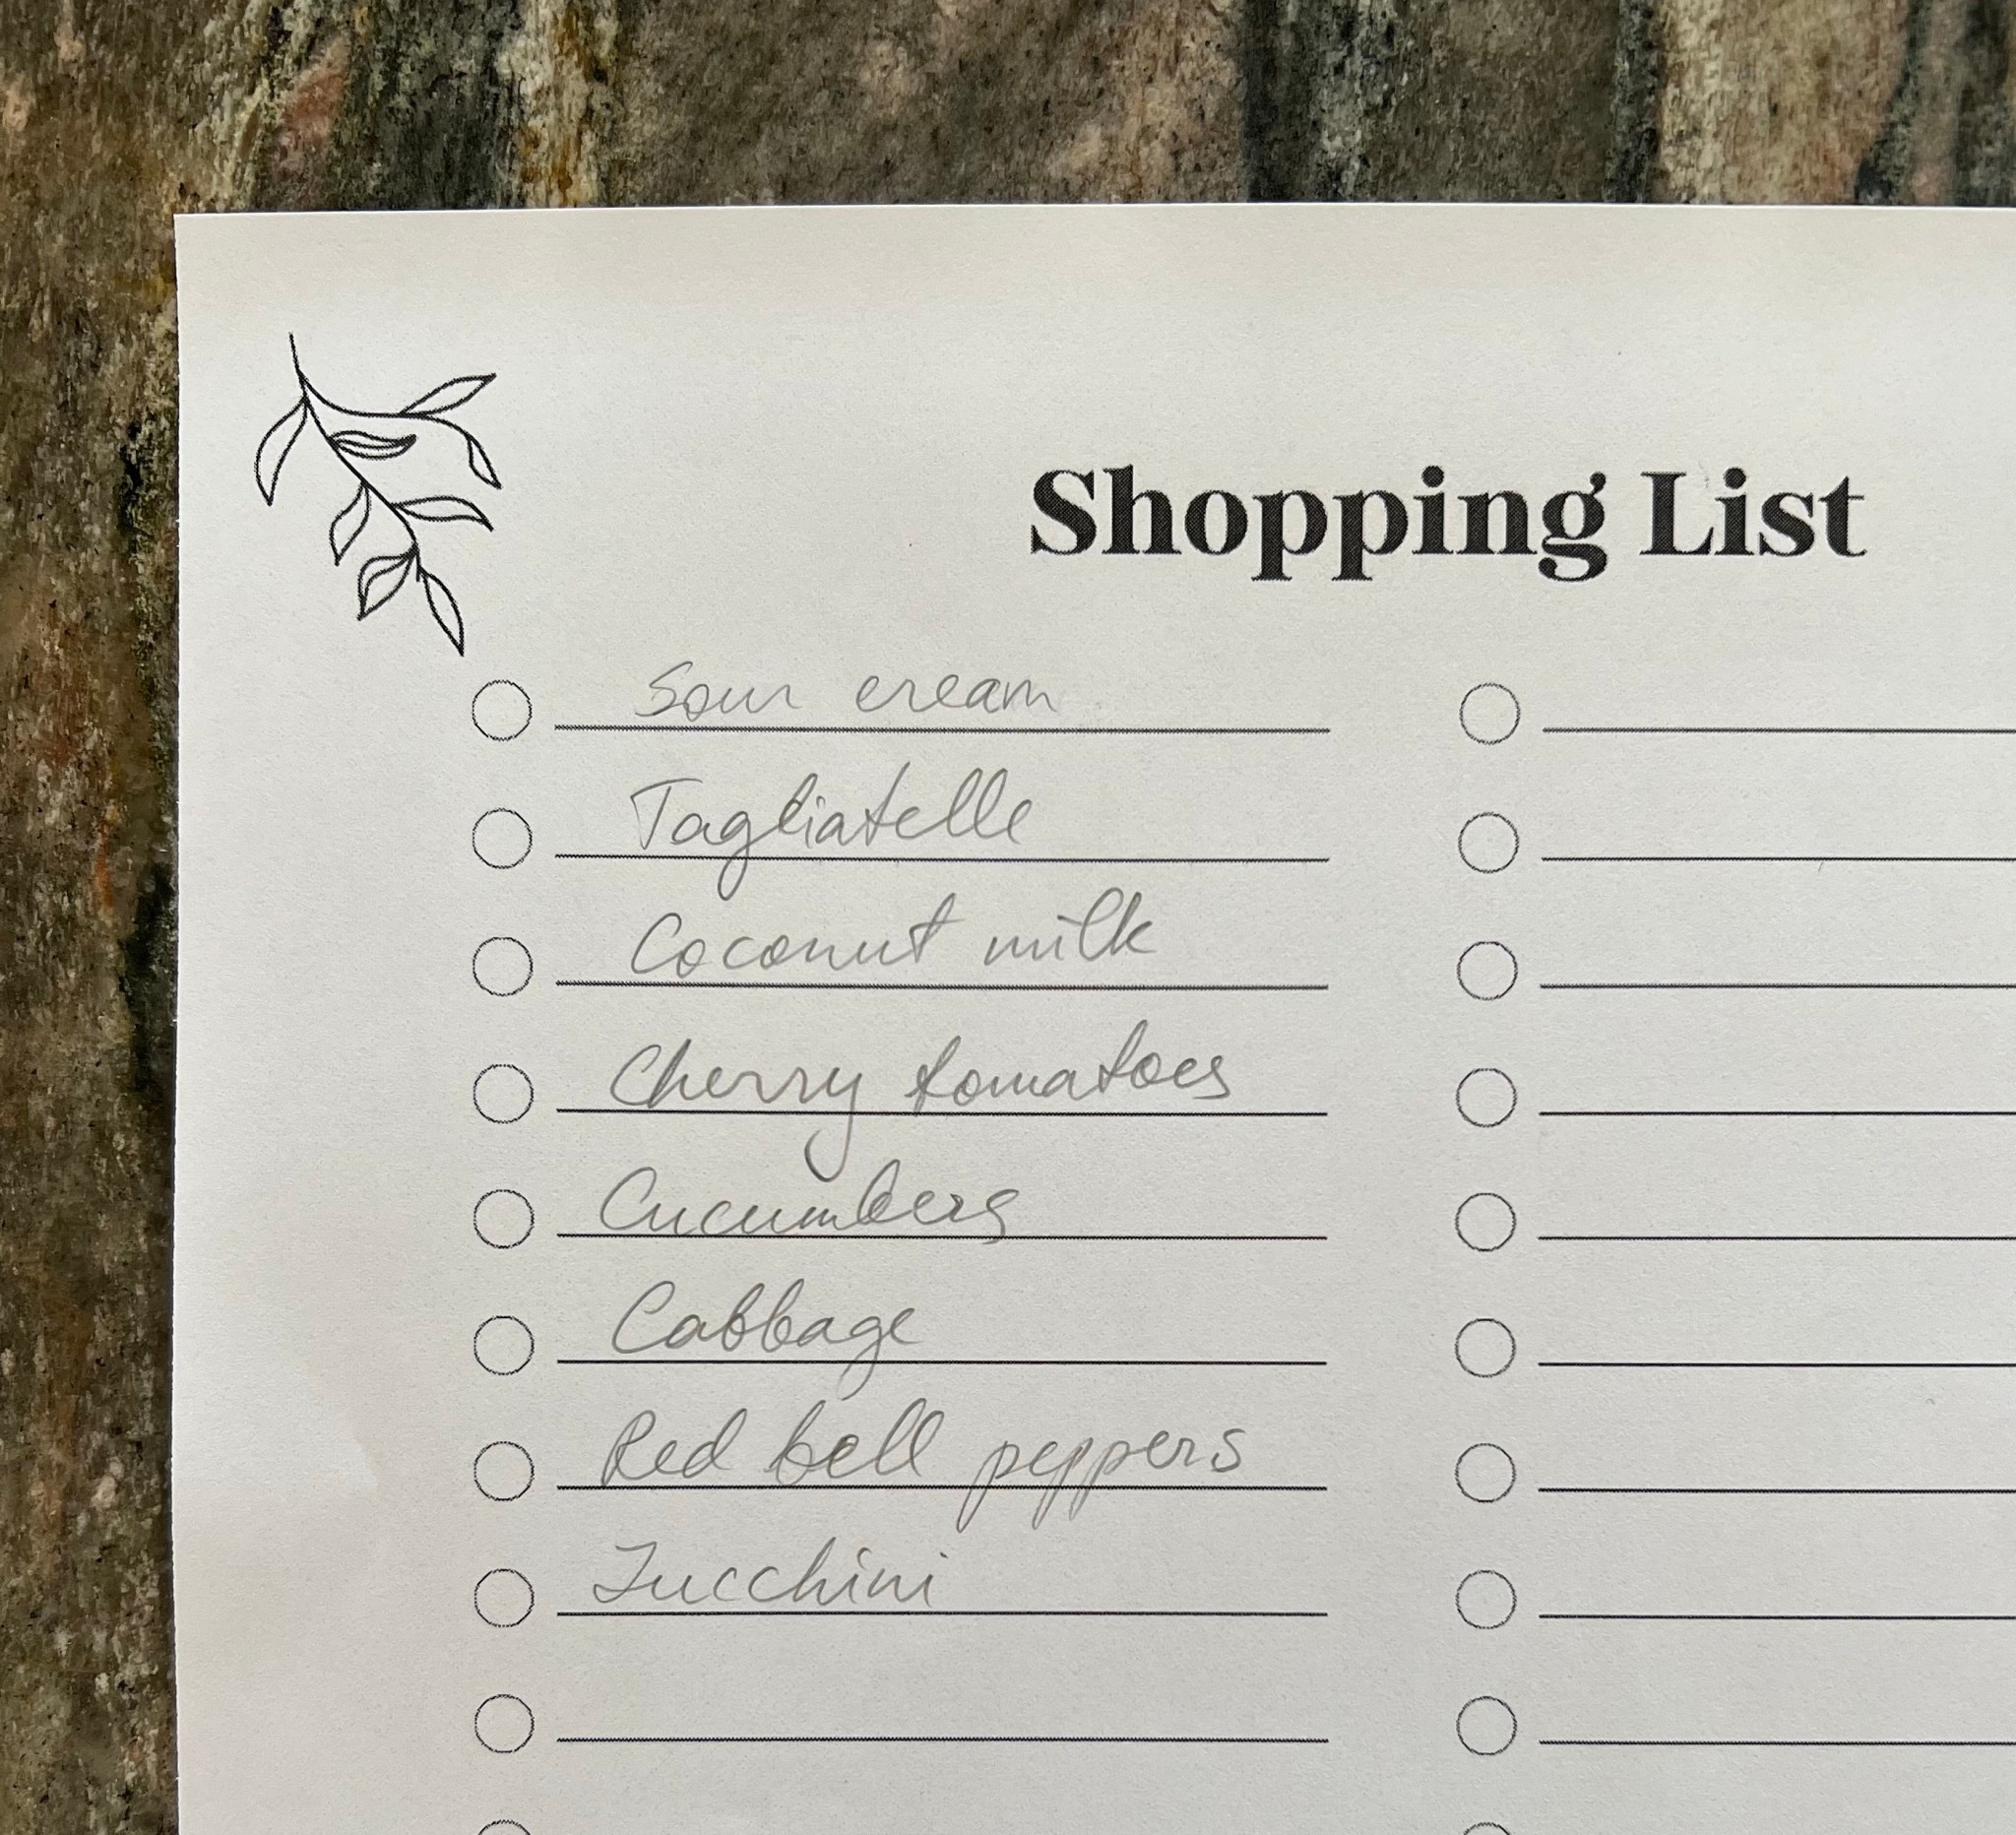 Shopping List
Sour cream
Tagliatelle
Coconut milk
Cherry tomatoes
Cucumbers
Cabbage
Red bell peppers
Zucchini